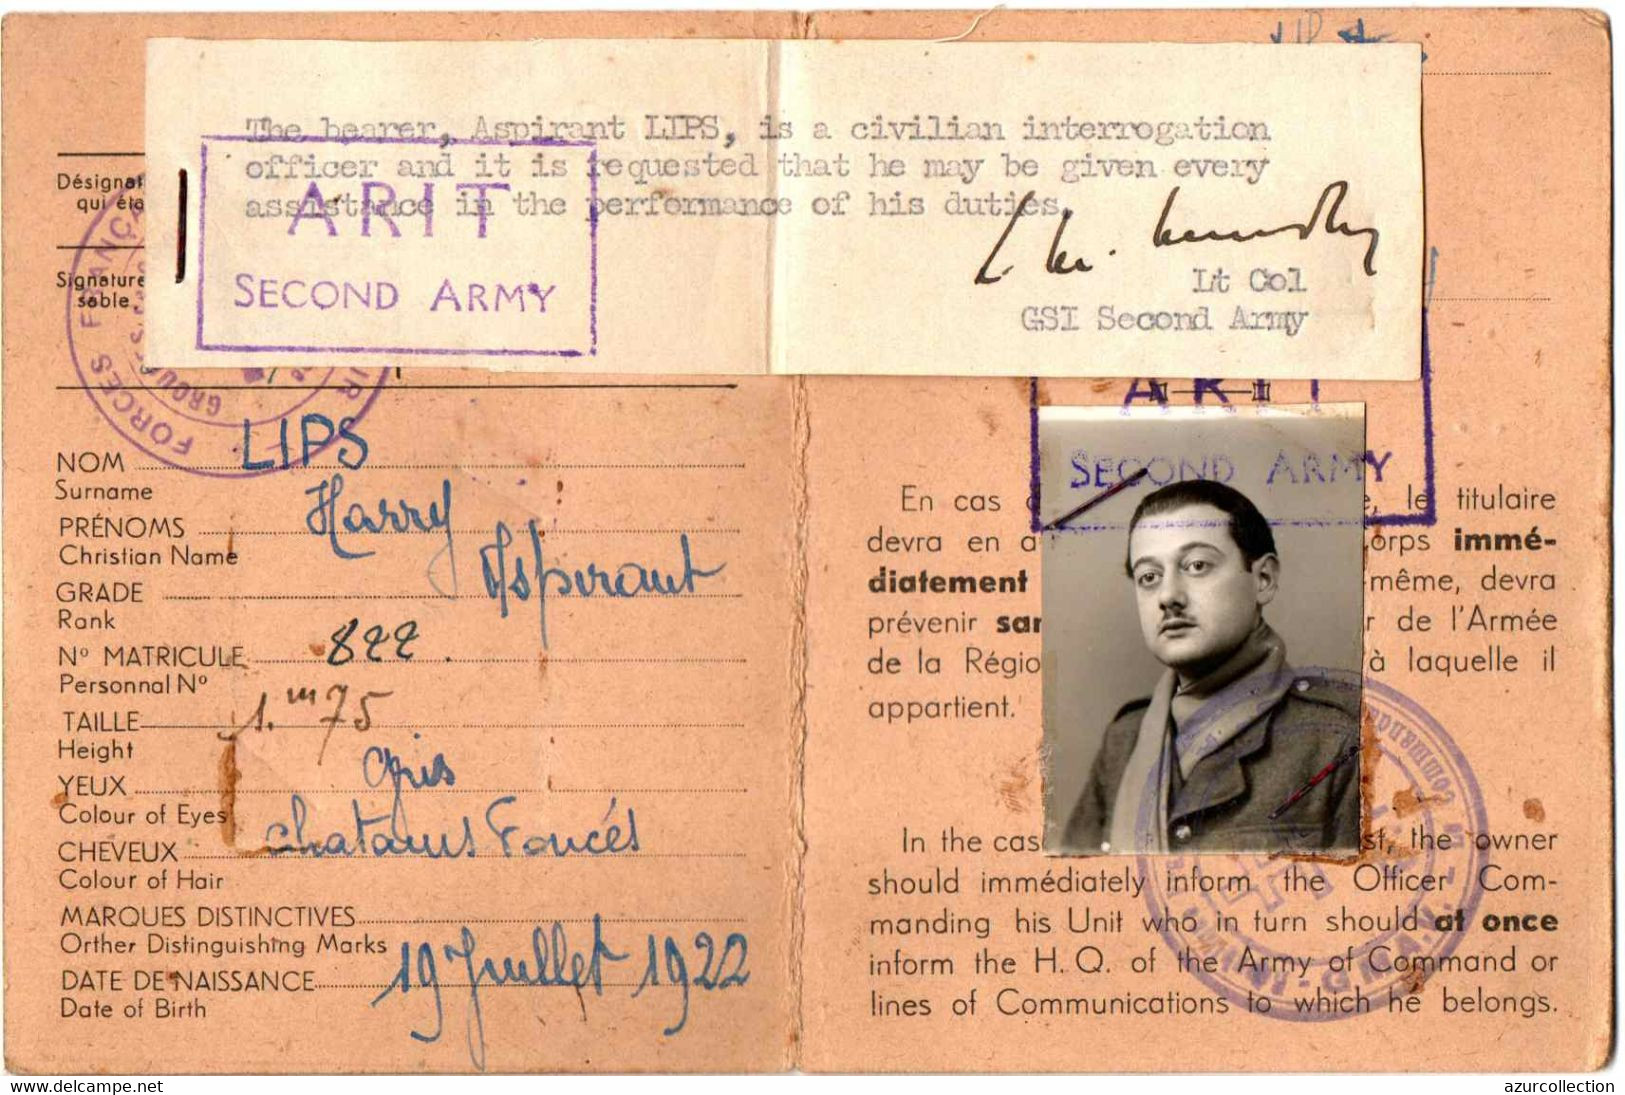 The bearer, Aspirant LIPS, is a civilian interrogation
officer and it is requested that he may be given every
assistance in the performance of his duties.
Lt Col
GSI Second Army
ARIT
SECOND ARMY
Désignat
qui éta
Signature
sable.
FORCES FRANÇA
GROU
NOM LIPS
Surname
PRÉNOMS Harry
Christian Name
GRADE Aspirant
Rank
Nº MATRICULE 822.
Personnal Nº
TAILLE 1.m75
Height
YEUX Gris
Colour of Eyes
CHEVEUX chatains Foncés
Colour of Hair
MARQUES DISTINCTIVES
Orther Distinguishing Marks
DATE DE NAISSANCE 19 Juillet 1922
Date of Birth
ARIT
SECOND ARMY
En cas e, le titulaire
devra en a corps immé-
diatement -même, devra
prévenir sar r de l'Armée
de la Régio à laquelle il
appartient.
In the cas st, the owner
should immédiately inform the Officer Com-
manding his Unit who in turn should at once
inform the H. Q. of the Army of Command or
lines of Communications to which he belongs.
azurcollection